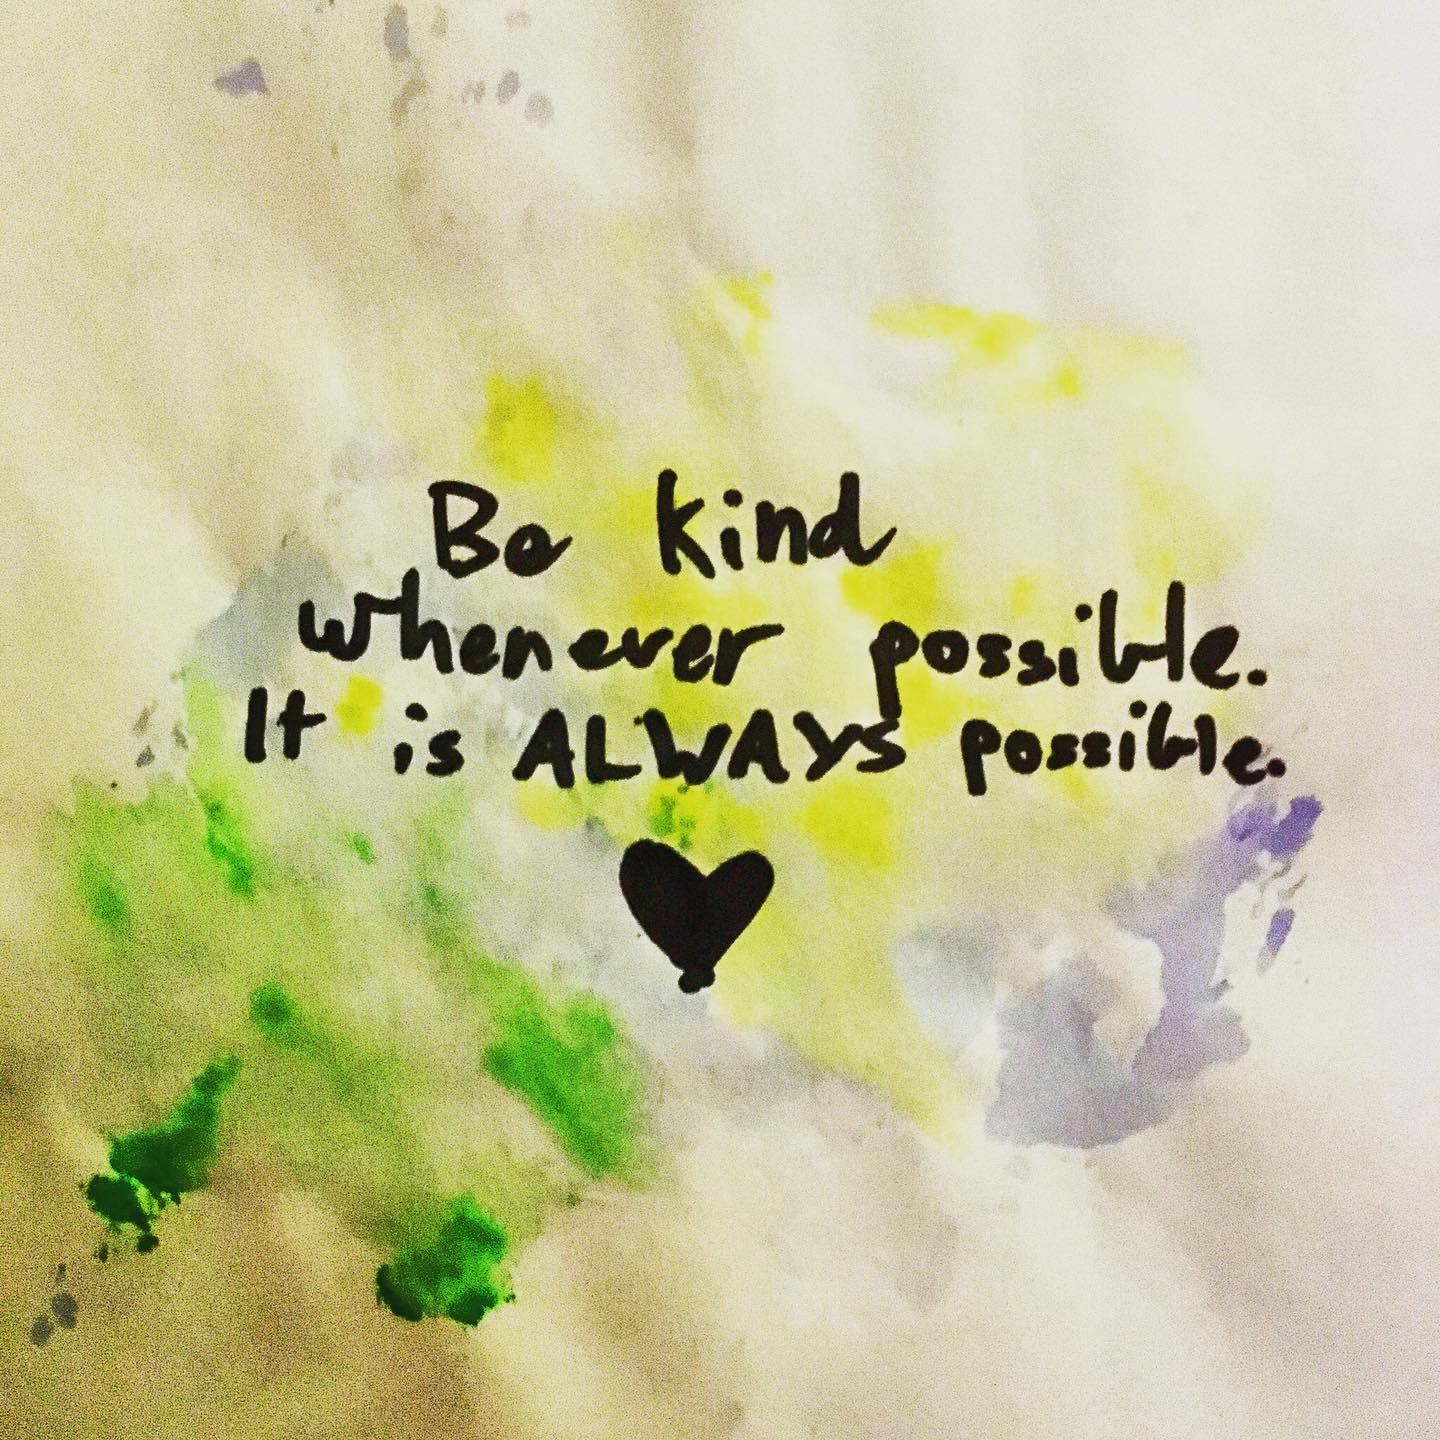 Be kind
whenever possible.
It is ALWAYS possible.